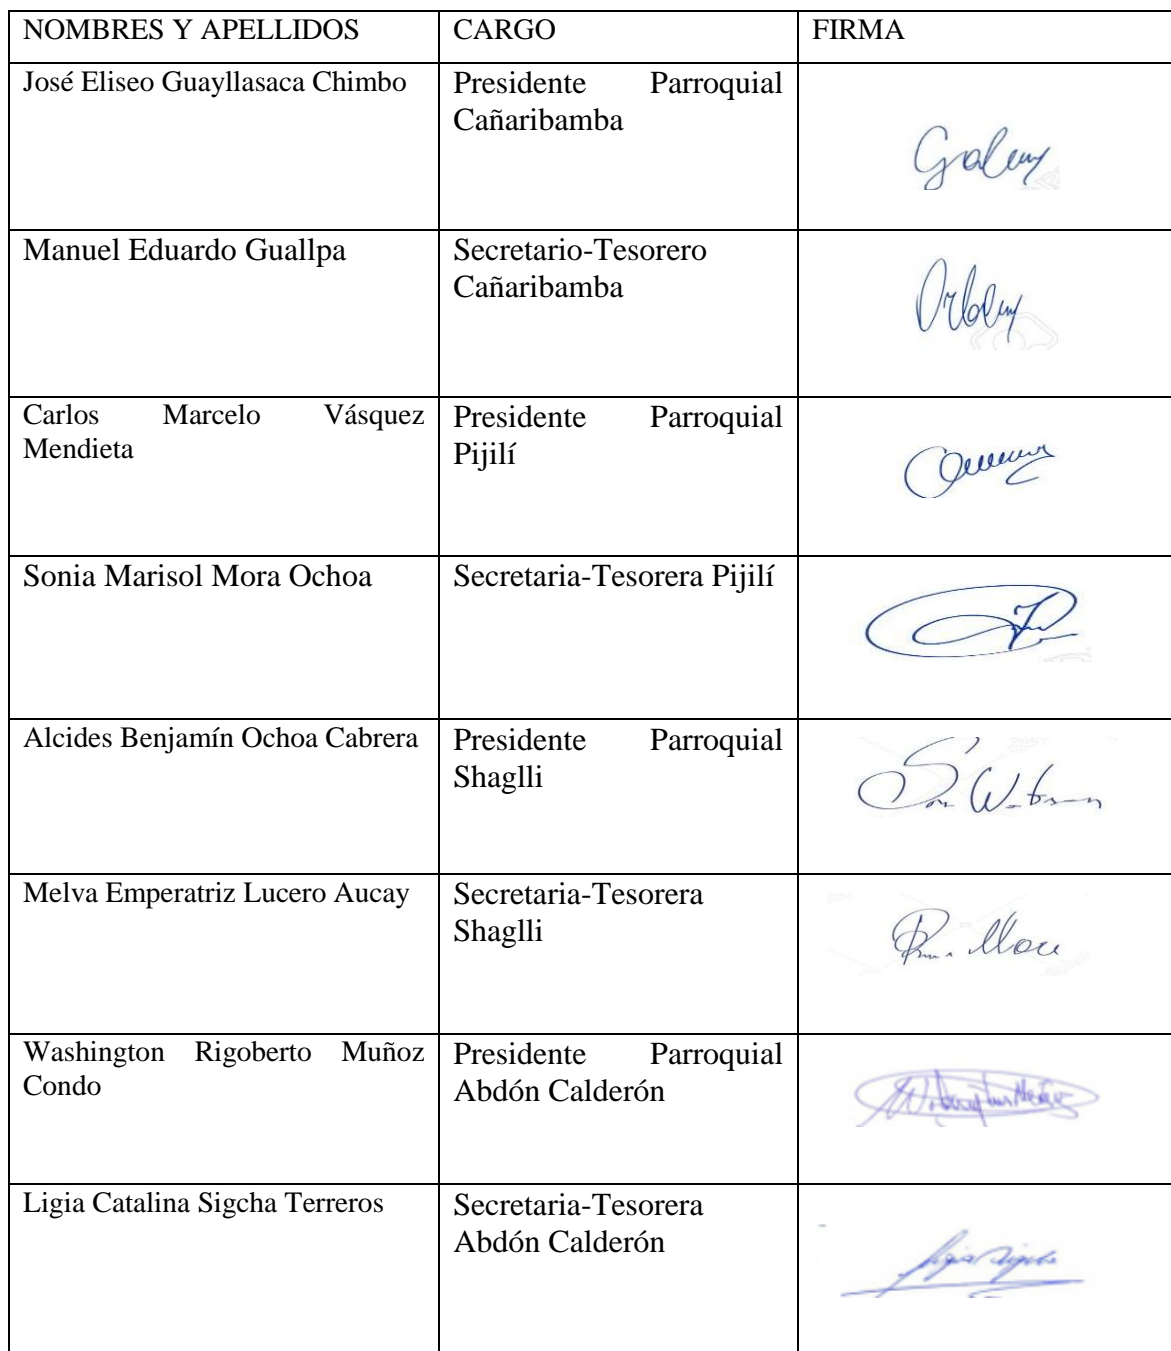 NOMBRES Y APELLIDOS CARGO FIRMA
José Eliseo Guayllasaca Chimbo Presidente Parroquial
Cañaribamba
Manuel Eduardo Guallpa Secretario-Tesorero
Cañaribamba
Carlos Marcelo Vásquez Presidente Parroquial
Mendieta Pijilí
Sonia Marisol Mora Ochoa Secretaria-Tesorera Pijilí
Alcides Benjamín Ochoa Cabrera Presidente Parroquial
Shaglli
Melva Emperatriz Lucero Aucay Secretaria-Tesorera
Shaglli
Washington Rigoberto Muñoz Presidente Parroquial
Condo Abdón Calderón
Ligia Catalina Sigcha Terreros Secretaria-Tesorera
Abdón Calderón